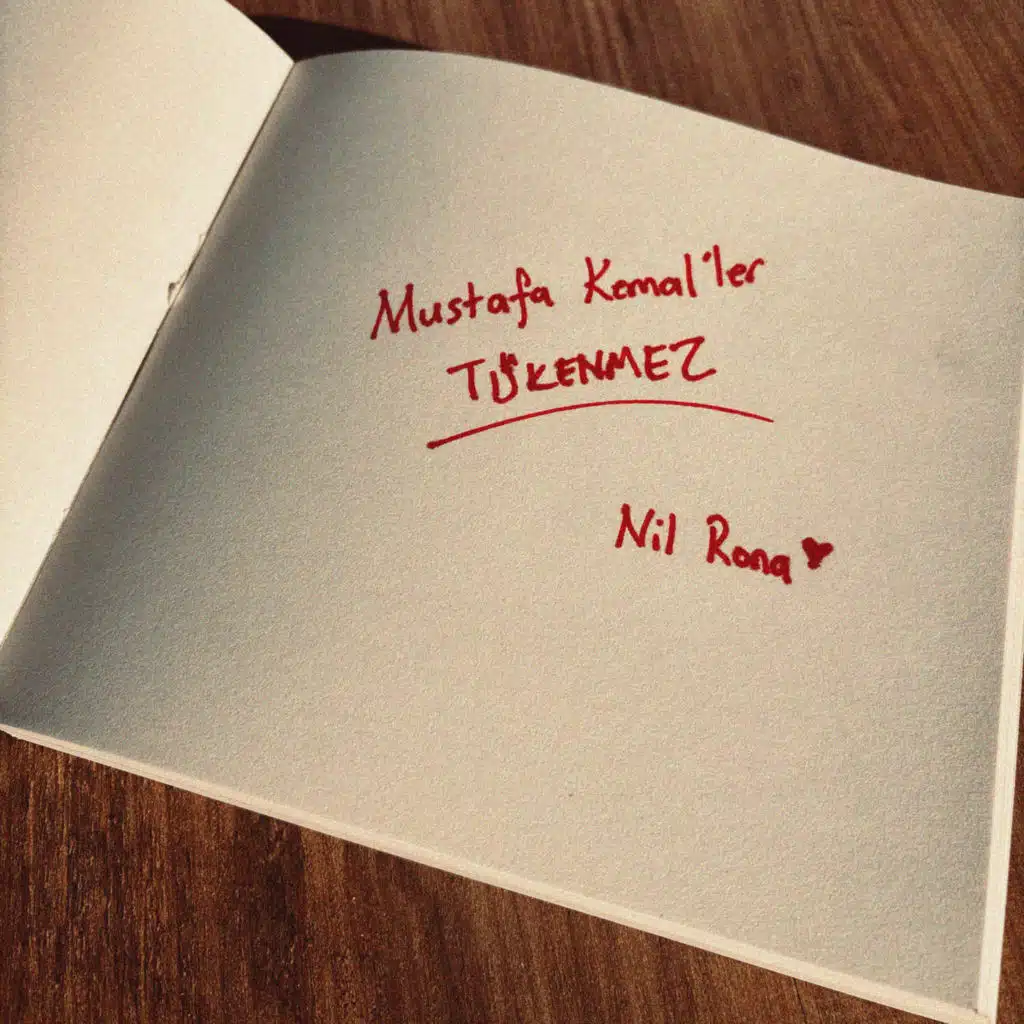 Mustafa Kemal'ler
TÜKENMEZ
Nil Rona ♥